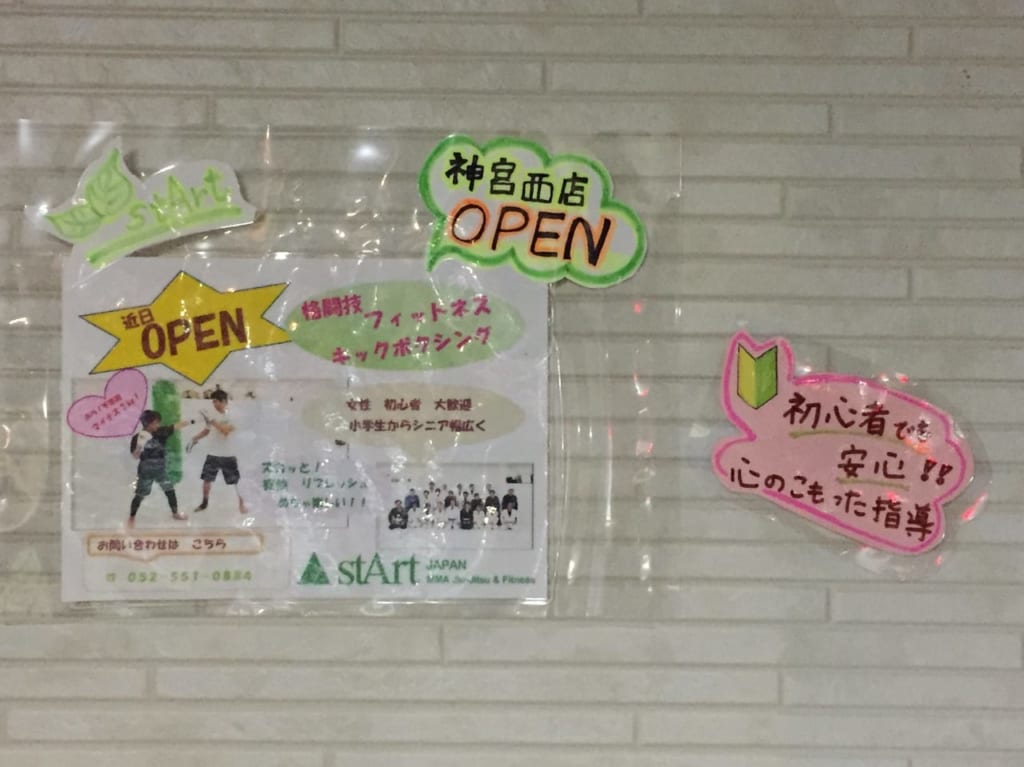 stArt
神宮西店
OPEN
近日
OPEN
格闘技
フィットネス
キックボクシング
女性 初心者 大歓迎
小学生からシニア幅広く
スカッと!
爽快 リフレッシュ
めちゃ楽しい!!
お問い合わせは こちら
052-551-0884
stArt JAPAN
MMA Jiu-Jitsu & Fitness
初心者でも
安心!!
心のこもった指導